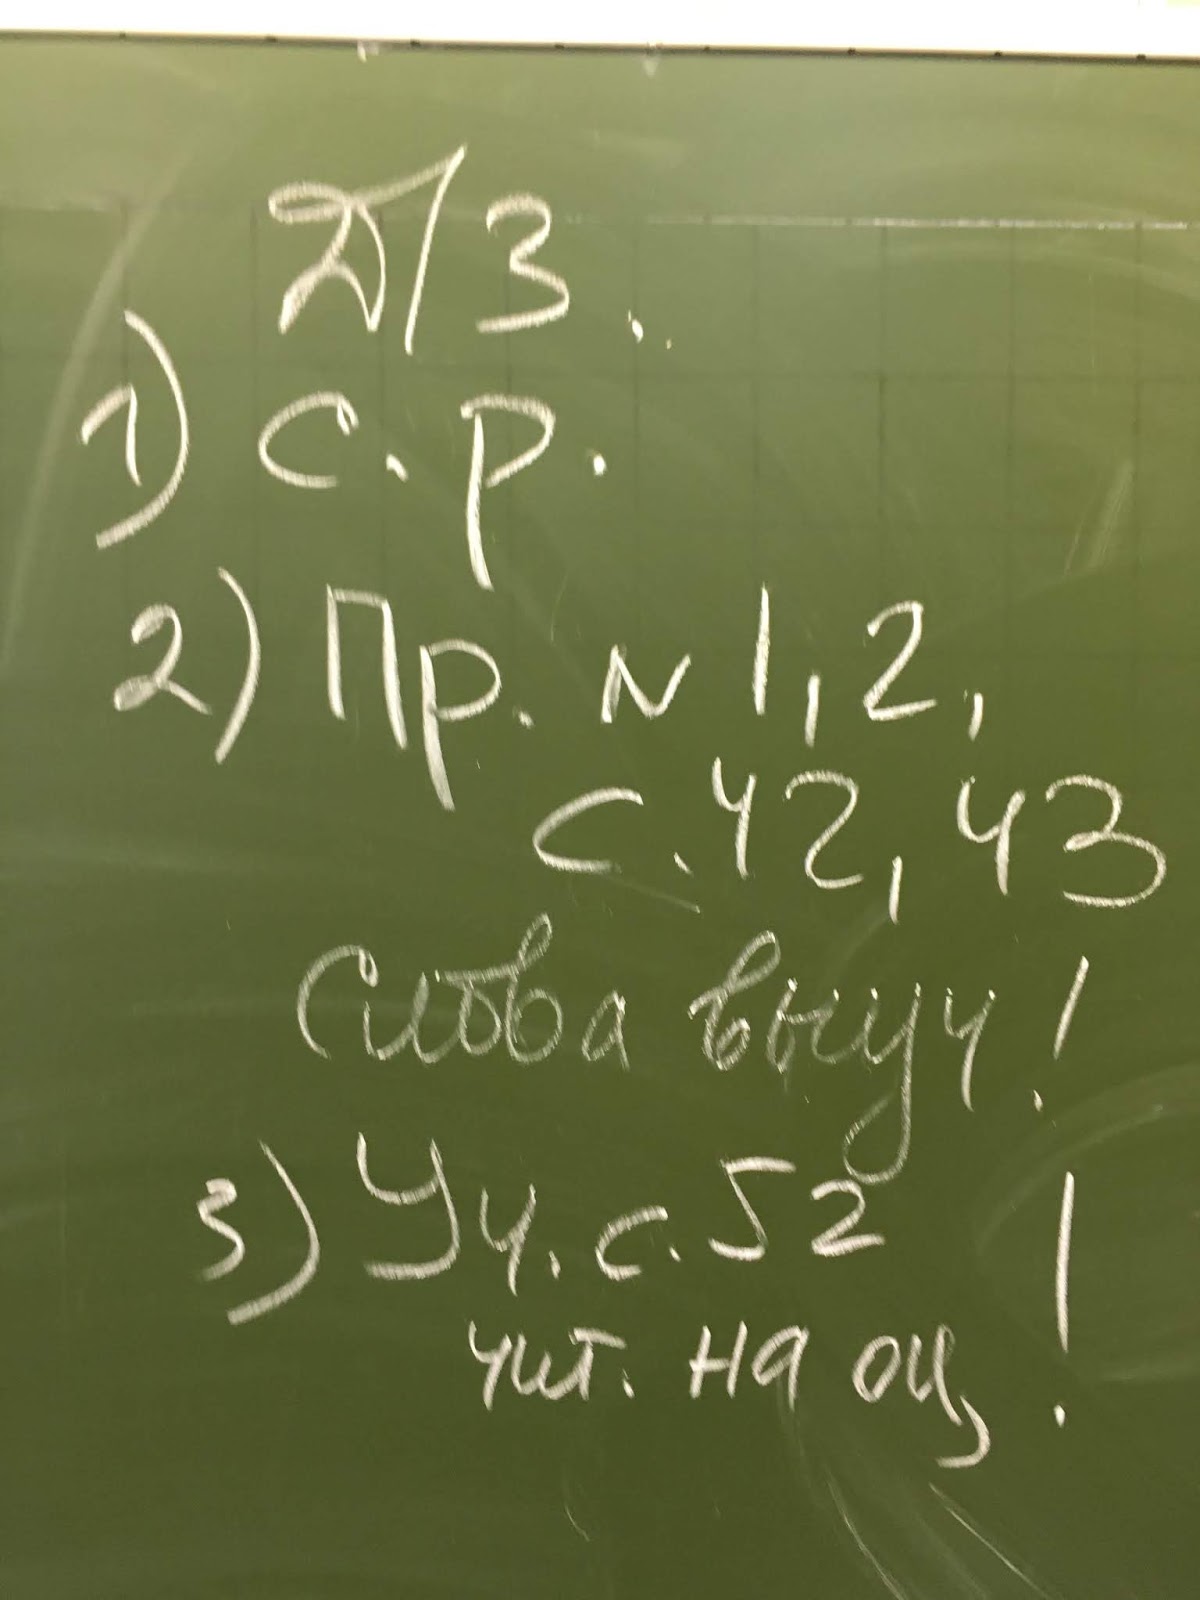 Д/З.
1) С.р.
2) Пр. N 1, 2,
с. 42, 43
Слова выуч!
3) Уч. с. 52
чит. на оц!